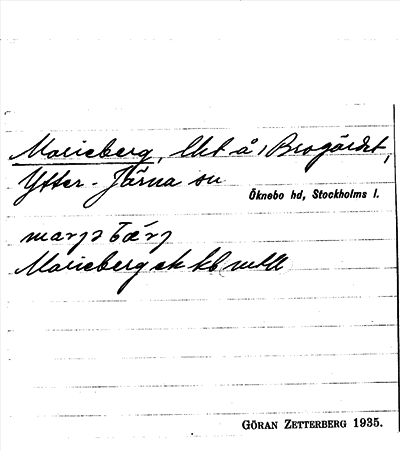 Marieberg, lht å 1 Brogärdet,
Ytter-Järna sn
Öknebo hd, Stockholms l.
Marieberg ek kb
GÖRAN ZETTERBERG 1935.